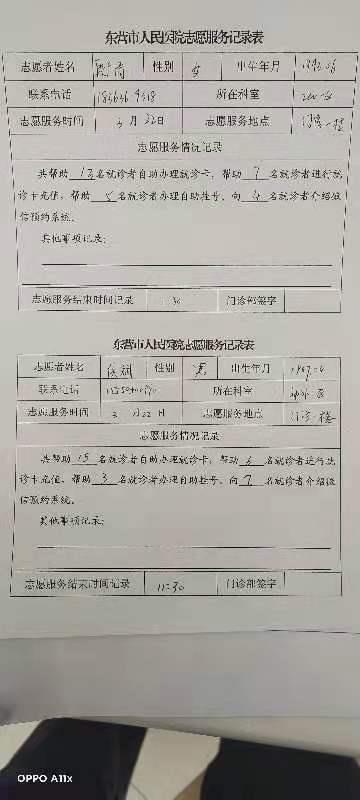 东营市人民医院志愿服务记录表
志愿者姓名 性别 女 出生年月
联系电话 所在科室
志愿服务时间 3月22日 志愿服务地点 门诊一楼
志愿服务情况记录
共帮助13名就诊者自助办理就诊卡，帮助7名就诊者进行就
诊卡充值，帮助5名就诊者办理自助挂号、向4名就诊者介绍微
信预约系统。
其他事项记录：
志愿服务结束时间记录 门诊部签字
东营市人民医院志愿服务记录表
志愿者姓名 性别 男 出生年月
联系电话 所在科室
志愿服务时间 3月22日 志愿服务地点 门诊一楼
志愿服务情况记录
共帮助15名就诊者自助办理就诊卡，帮助6名就诊者进行就
诊卡充值，帮助3名就诊者办理自助挂号、向7名就诊者介绍微
信预约系统。
其他事项记录：
志愿服务结束时间记录 11:30 门诊部签字
OPPO A11x